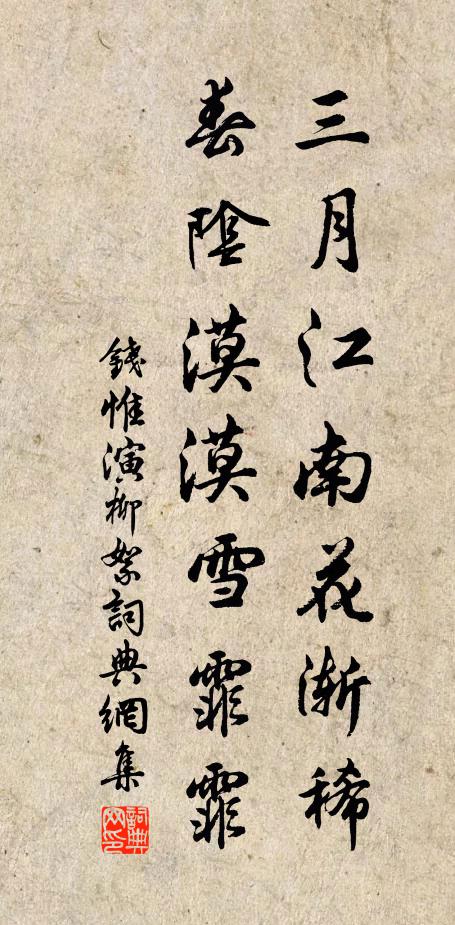 三月江南花漸稀
春陰漠漠雪霏霏
錢惟演柳絮詞典網集
詞典網印